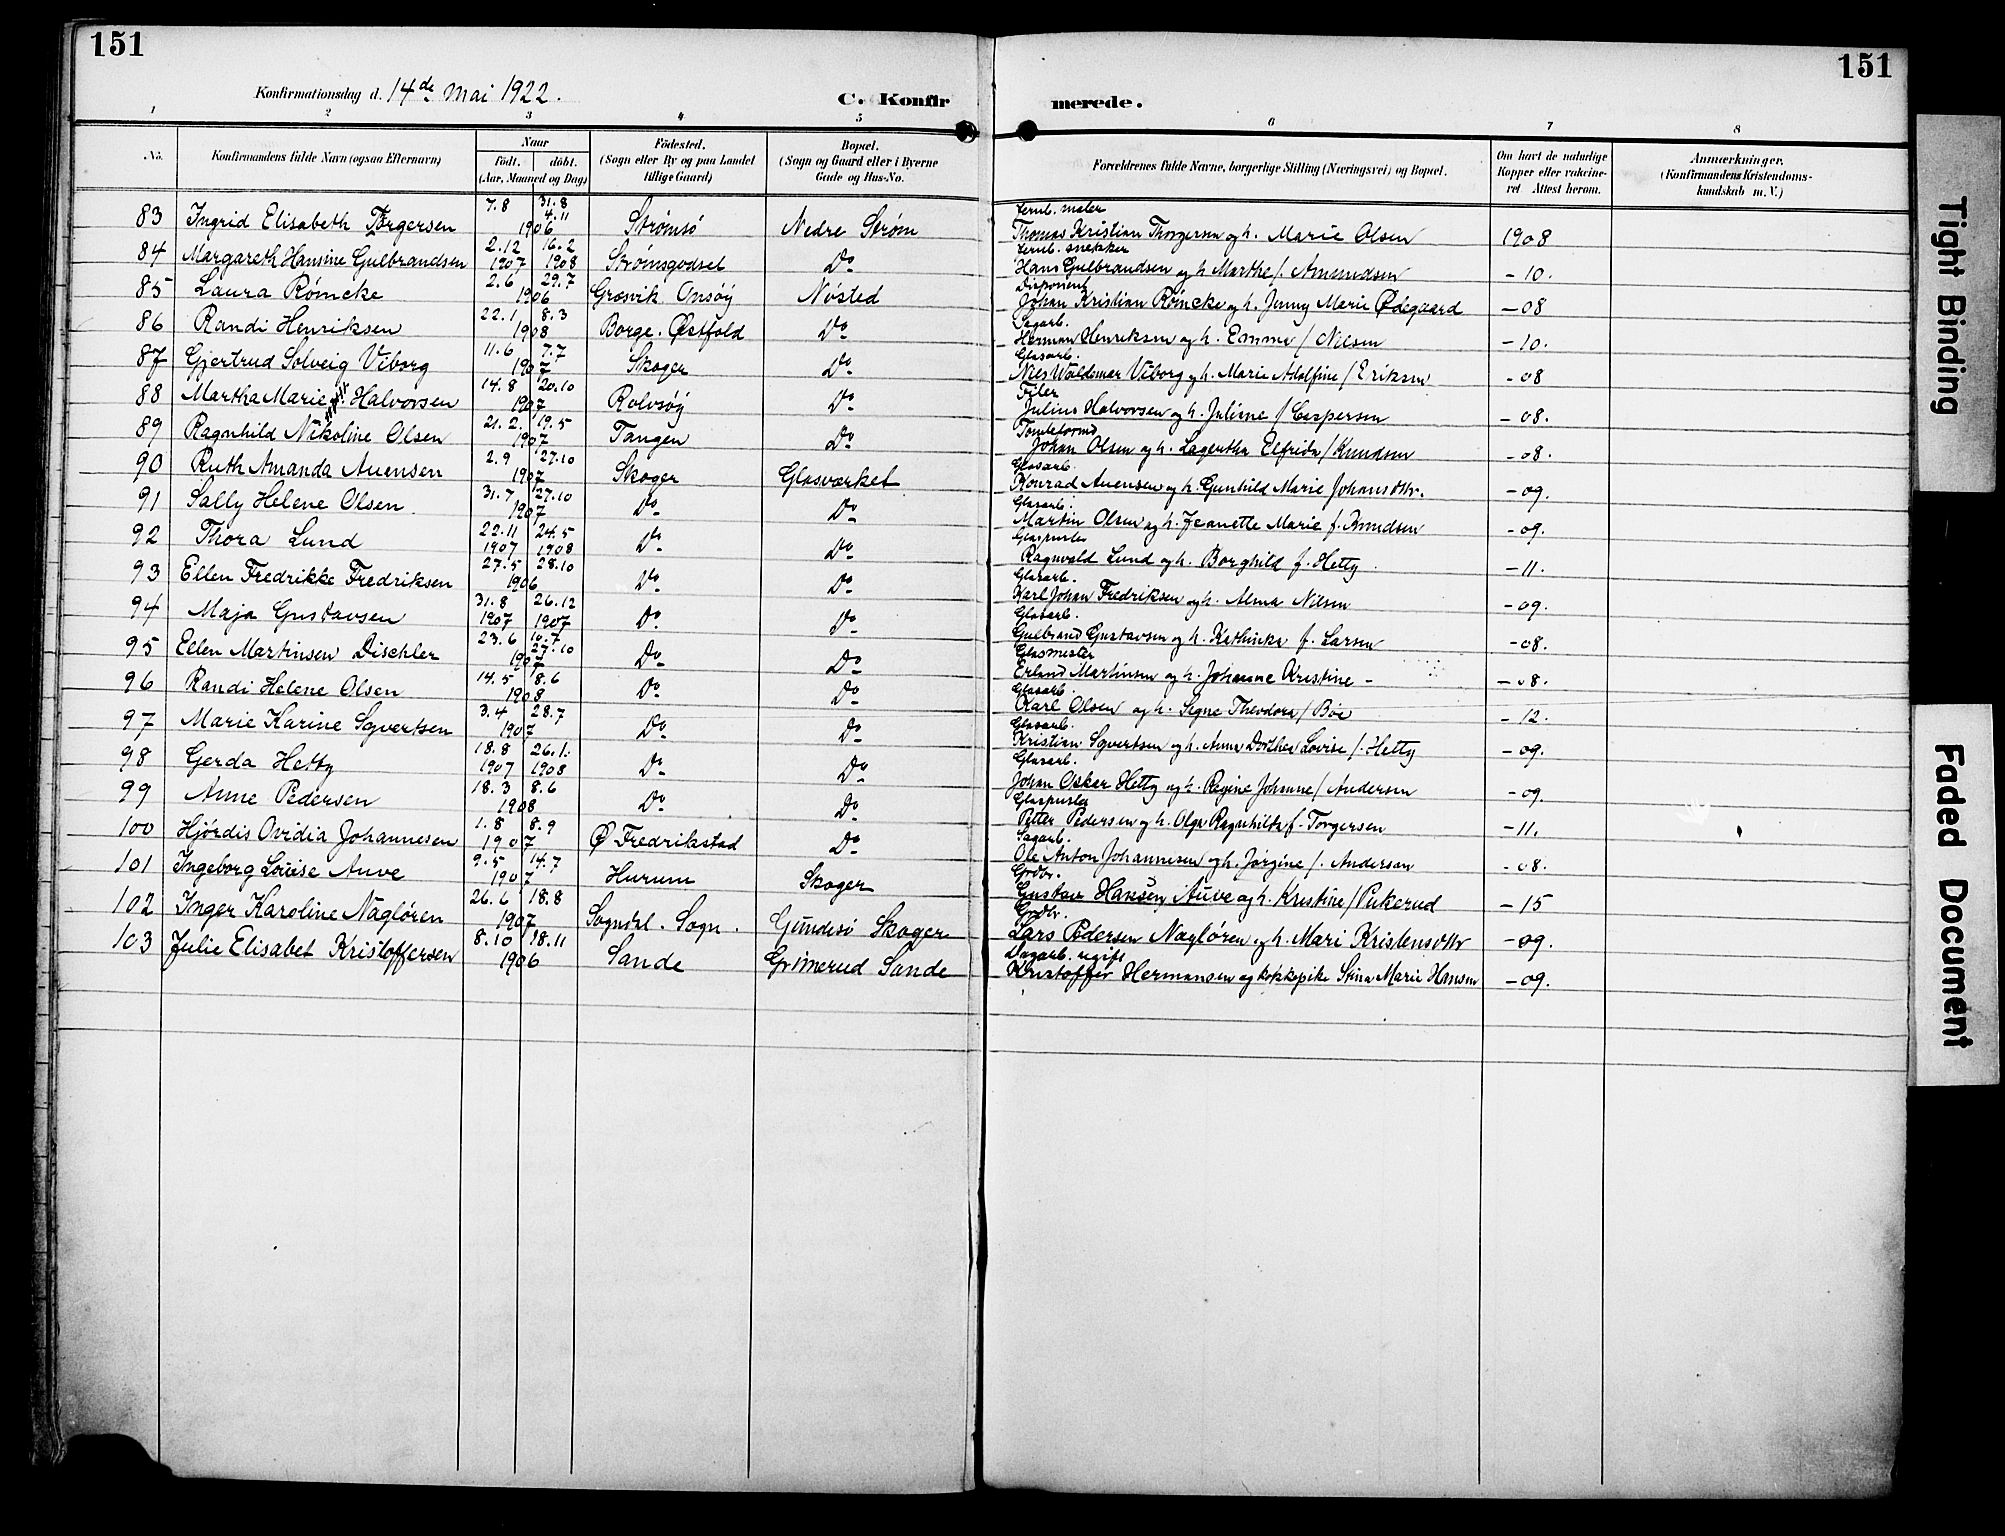 151
151
Konfirmationsdag d. 14de Mai 1922.
C. Konfir merede.
1 2 3 4 5 6 7 8
No.
Konfirmandens fulde Navn (ogsaa Efternavn)
Naar
födt. döbt.
(Aar, Maaned og Dag)
Födested.
(Sogn eller By og paa Landet
tillige Gaard)
Bopæl.
(Sogn og Gaard eller i Byerne
Gade og Hus-No.
Forældrenes fulde Navne, borgerlige Stilling (Næringsvei) og Bopæl.
Om havt de naturlige
Kopper eller vakcine-
ret Attest herom.
Anmærkninger.
(Konfirmandens Kristendoms-
kundskab m. V.)
83 Ingrid Elisabeth Torgersen 7.8 31.8 4.11 1906 Strømsø Nedre Strøm Jernb. maler Thomas Kristian Thorgersen og h. Marie Olsen 1908
84 Margareth Hansine Gulbrandsen 2.12 1907 16.2 1908 Strømsgodset Do Jernb. snekker Hans Gulbrandsen og h. Marthe f. Amundsen - 10.
85 Laura Rømcke 2.6 29.7 1906 Græsvik Onsøy Nøsted Disponent Johan Kristian Rømcke og h. Jenny Marie Ødegaard - 08
86 Randi Henriksen 22.1 8.3 1908 Borge. Østfold Do Sagarb. Herman Henriksen og h. Emma f Nilsen - 10.
87 Gjertrud Solveig Viborg 11.6 7.7 1907 Skoger Do Glasarb. Niels Waldemar Viborg og h. Marie Adolfine f Eriksen - 08
88 Martha Marie Halvorsen 14.8 20.10 1907 Rolvsøy Do Filer Julius Halvorsen og h. Juline f Caspersen - 08.
89 Ragnhild Nikoline Olsen 21.2. 19.5 1907 Tangen Do Tomteformd Johan Olsen og h. Lagertha Elfrida f Knudsen - 08.
90 Ruth Amanda Auensen 2.9 27.10 1907 Skoger Glasværket Glasarb. Konrad Auensen og h. Gunhild Marie Johansdtr. - 09.
91 Sally Helene Olsen 31.7 27.10 1907 Do Do Glasarb. Martin Olsen og h. Jeanette Marie f. Knudsen - 09.
92 Thora Lund 22.11 1907 24.5 1908 Do Do Glaspuster Ragnvald Lund og h. Borghild f. Hetty - 11.
93 Ellen Fredrikke Fredriksen 27.5 28.10 1906 Do Do Glasarb. Karl Johan Fredriksen og h. Alma Nilsen - 09.
94 Maja Gustavsen 31.8 1907 26.12 1907 Do Do Glasarb. Gulbrand Gustavsen og h. Kathinka f. Larsen - 08.
95 Ellen Martinsen Dischler 23.6 10.7 27.10 1907 Do Do Glasmester Erland Martinsen og h. Johanne Kristine - - 08.
96 Randi Helene Olsen 14.5 8.6 1908 Do Do Glasarb. Karl Olsen og h. Signe Theodora f Bøe - 12.
97 Marie Karine Syvertsen 3.4 28.7 1907 Do Do Glasarb. Kristian Syvertsen og h. Anna Dorthea Lovise f. Hetty - 09.
98 Gerda Hetty 18.8 1907 26.1. 1908 Do Do Glasarb. Johan Oskar Hetty og h. Regine Johanne f Andersen - 09.
99 Anne Pedersen 18.3 8.6 1908 Do Do Glaspuster Petter Pedersen og h. Olga Ragnhilda f. Torgersen - 11.
100 Hjørdis Ovidia Johannesen 1.8 8.9 1907 Ø Fredrikstad Do Sagarb. Ole Anton Johannesen og h. Jørgine f. Andersen - 08.
101 Ingeborg Louise Auve 9.5 14.7 1907 Hurum Skoger Grdbr. Gustav Hansen Auve og h. Kristine f Pukerud - 15
102 Inger Karoline Nagløren 26.6 18.8 1907 Sogndal. Sogn. Gundesø Skoger Grdbr. Lars Pedersen Nagløren og h. Mari Kristensdtr - 09.
103 Julie Elisabet Kristoffersen 8.10 18.11 1906 Sande Grimerud Sande Dagarb. ugift Kristoffer Hermansen og kokkepike Stina Marie Hansen - 09.
Tight Binding
Faded Document